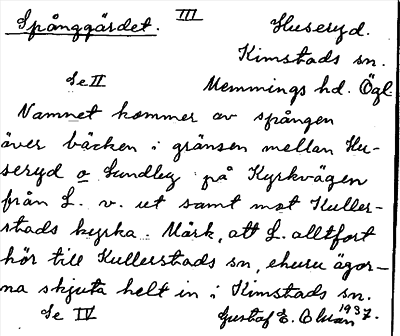 Spånggärdet. III Huseryd.
Kimstads sn.
Se II Memmings hd. Ögl
Namnet kommer av spången
över bäcken i gränsen mellan Hu-
seryd o Lundby på Kyrkvägen
från L. v. ut samt mot Kuller-
stads kyrka. Märk, att L. alltfort
hör till Kullerstads sn, ehuru ägor-
na skjuta helt in i Kimstads sn.
Se IV Gustaf E. 1937.